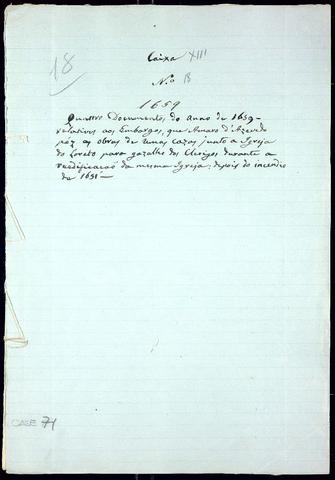 18
Caixa XIII
N.o B
1659
Quatro Documentos, do anno de 1659 -
relativos aos Embargos, que Amaro d'Azevedo
poz as obras de humas cazas junto a Igreja
do Loreto para gazalho dos Clerigos durante a
reedificacaõ da mesma Igreja, depois do incendio
de 1651 -
CASE 71